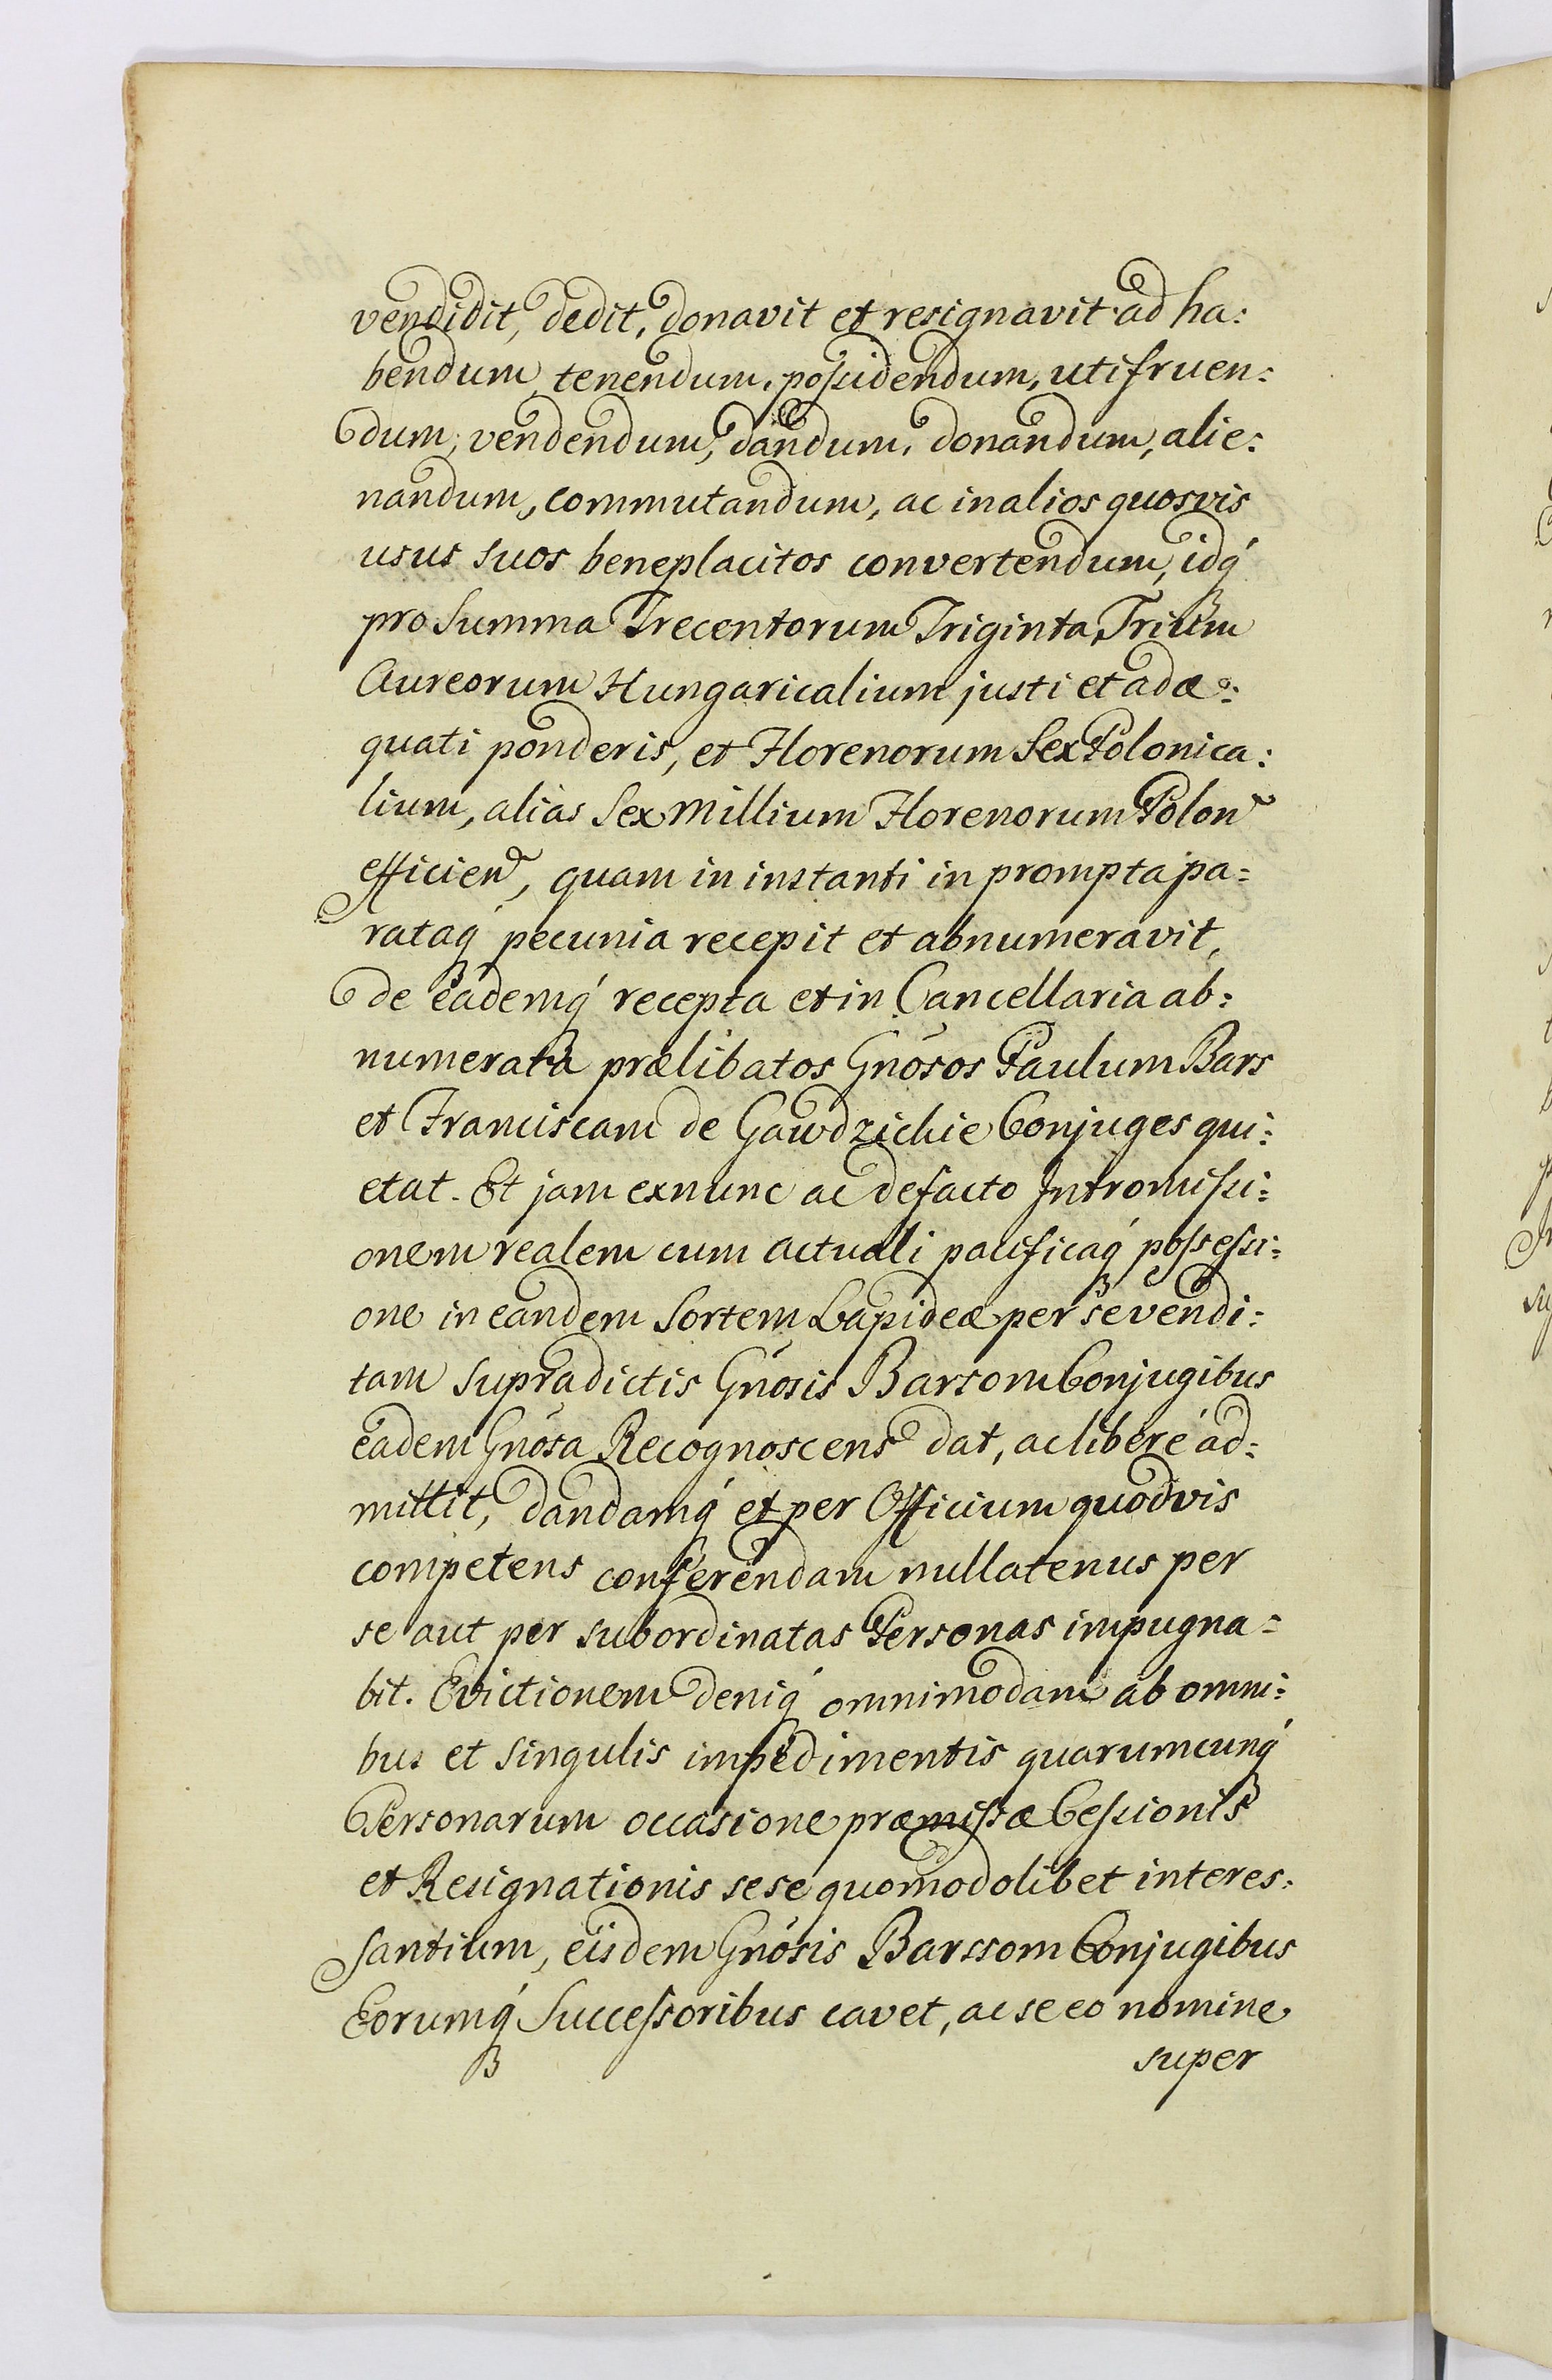 vendidit, dedit, donavit et resignavit ad ha:
bendum tenendum, possidendum, utifruen:
dum, vendendum, dandum, donandum, alie:
nandum, commutandum, ac in alios quosvis
usus suos beneplacitos convertendum, idq́
pro Summa Trecentorum Triginta Trium
Aureorum Hungaricalium justi et adæ:
quati ponderis, et Florenorum Sex Polonica:
lium, alias Sex Millium Florenorum Polon
efficien, quam in instanti in prompta pa=
rataq́ pecunia recepit et abnumeravit,
de eademq́ recepta et in Cancellaria ab:
numerata prælibatos Gnósos Paulum Bars
et Franciscam de Gawdzickie Conjuges qui:
etat. Et jam exnunc ac defacto Intromissi:
onem realem cum actuali pacificaq́ possessi:
one in eandem Sortem Lapideæ per se vendi:
tam supradictis Gnósis Barsom Conjugibus
eadem Gnósa Recognoscens dat, ac liberé ad:
mittit, dandamq́ et per Officium quodvis
competens conferendam nullatenus per
se aut per subordinatas Personas impugna=
bit. Evictionem deniq́ omnimodam ab omni:
bus et singulis impedimentis quarumcunq́
Personarum occasione præmissæ Cessionis
et Resignationis sese quomodolibet interes:
santium, eisdem Gnósis Barssom Conjugibus
Eorumq́ Successoribus cavet, ac se eo nomine
super